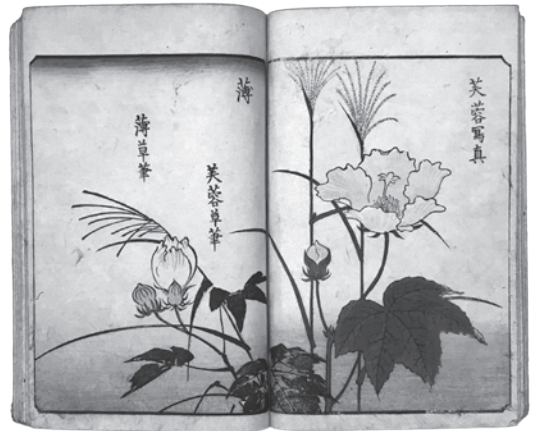 芙蓉寫真
薄
芙蓉草筆
薄草筆